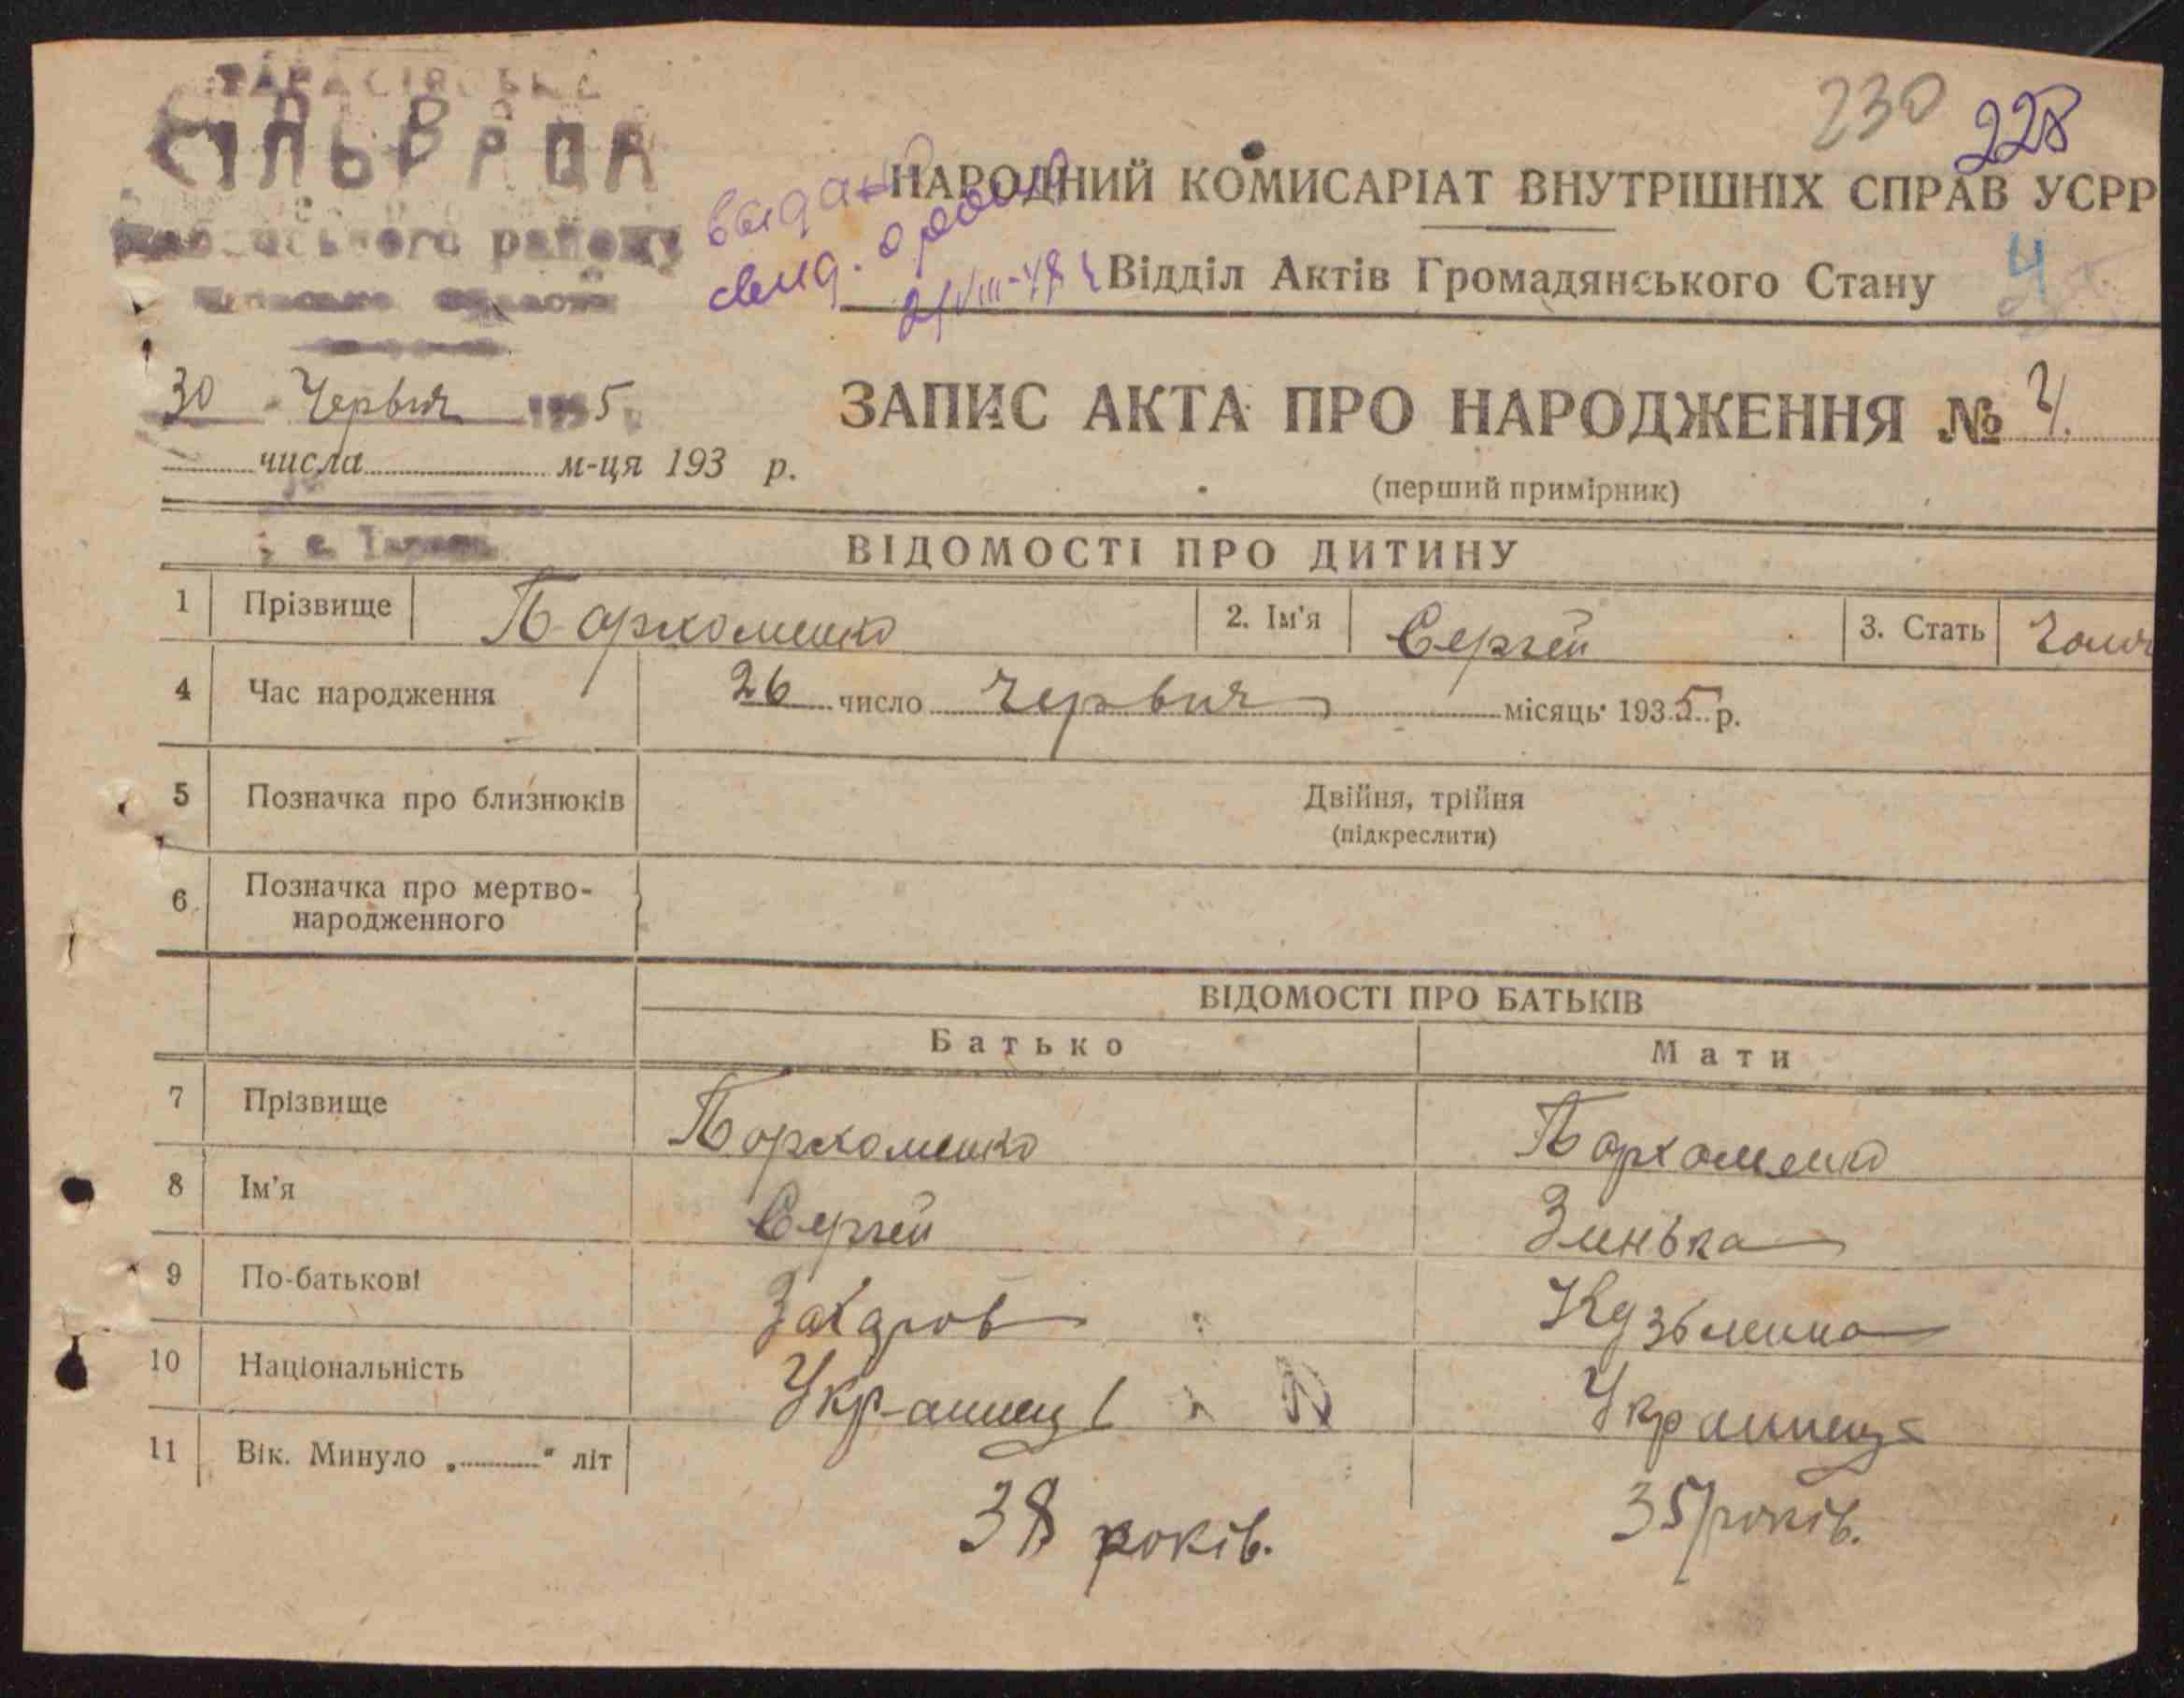 СІЛЬРАДА
району
230
228
НАРОДНИЙ КОМИСАРІАТ ВНУТРІШНІХ СПРАВ УСРР
4
Відділ Актів Громадянського Стану
30 Червня 1935
числа м-ця 193 р.
ЗАПИС АКТА ПРО НАРОДЖЕННЯ №
(перший примірник)
ВІДОМОСТІ ПРО ДИТИНУ
1 Прізвище Пархоменко 2. Ім'я Сергей 3. Стать
4 Час народження 26 число червня місяць 1935 р.
5 Позначка про близнюків Двійня, трійня
(підкреслити)
6 Позначка про мертво-
народженного
ВІДОМОСТІ ПРО БАТЬКІВ
Батько Мати
7 Прізвище Пархоменко Пархоменко
8 Ім'я Сергей Зинька
9 По-батькові Захаров Кузьмина
10 Національність
11 Вік. Минуло „ " літ
38 років. 35 років.